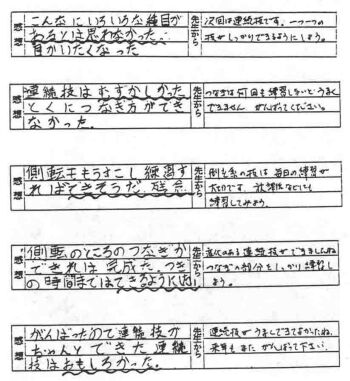 感想
こんなにいろいろな種目が
あるとは思わなかった
首がいたくなった
先生から
次回は連続技です。一つ一つの
技がしっかりできるようにしよう。
感想
連続技はむずかしかった
とくにつなぎ方ができ
なかった。
先生から
つなぎは何回も練習しないとうまく
できません がんばってください。
感想
側転をもうすこし練習す
ればできそうだ。残念
先生から
倒立系の技は毎日の練習が
大切です。放課後などにも
練習してみよう。
感想
側転のところのつなぎが
できれば完成だ。つぎ
の時間まではできるように
先生から
変化のある連続技ができましたね
つなぎの部分をしっかり練習し
よう。
感想
がんばったので連続技が
ちゃんとできた。連続
技はおもしろかった。
先生から
連続技がうまくできてよかったね。
来年もまたがんばって下さい。